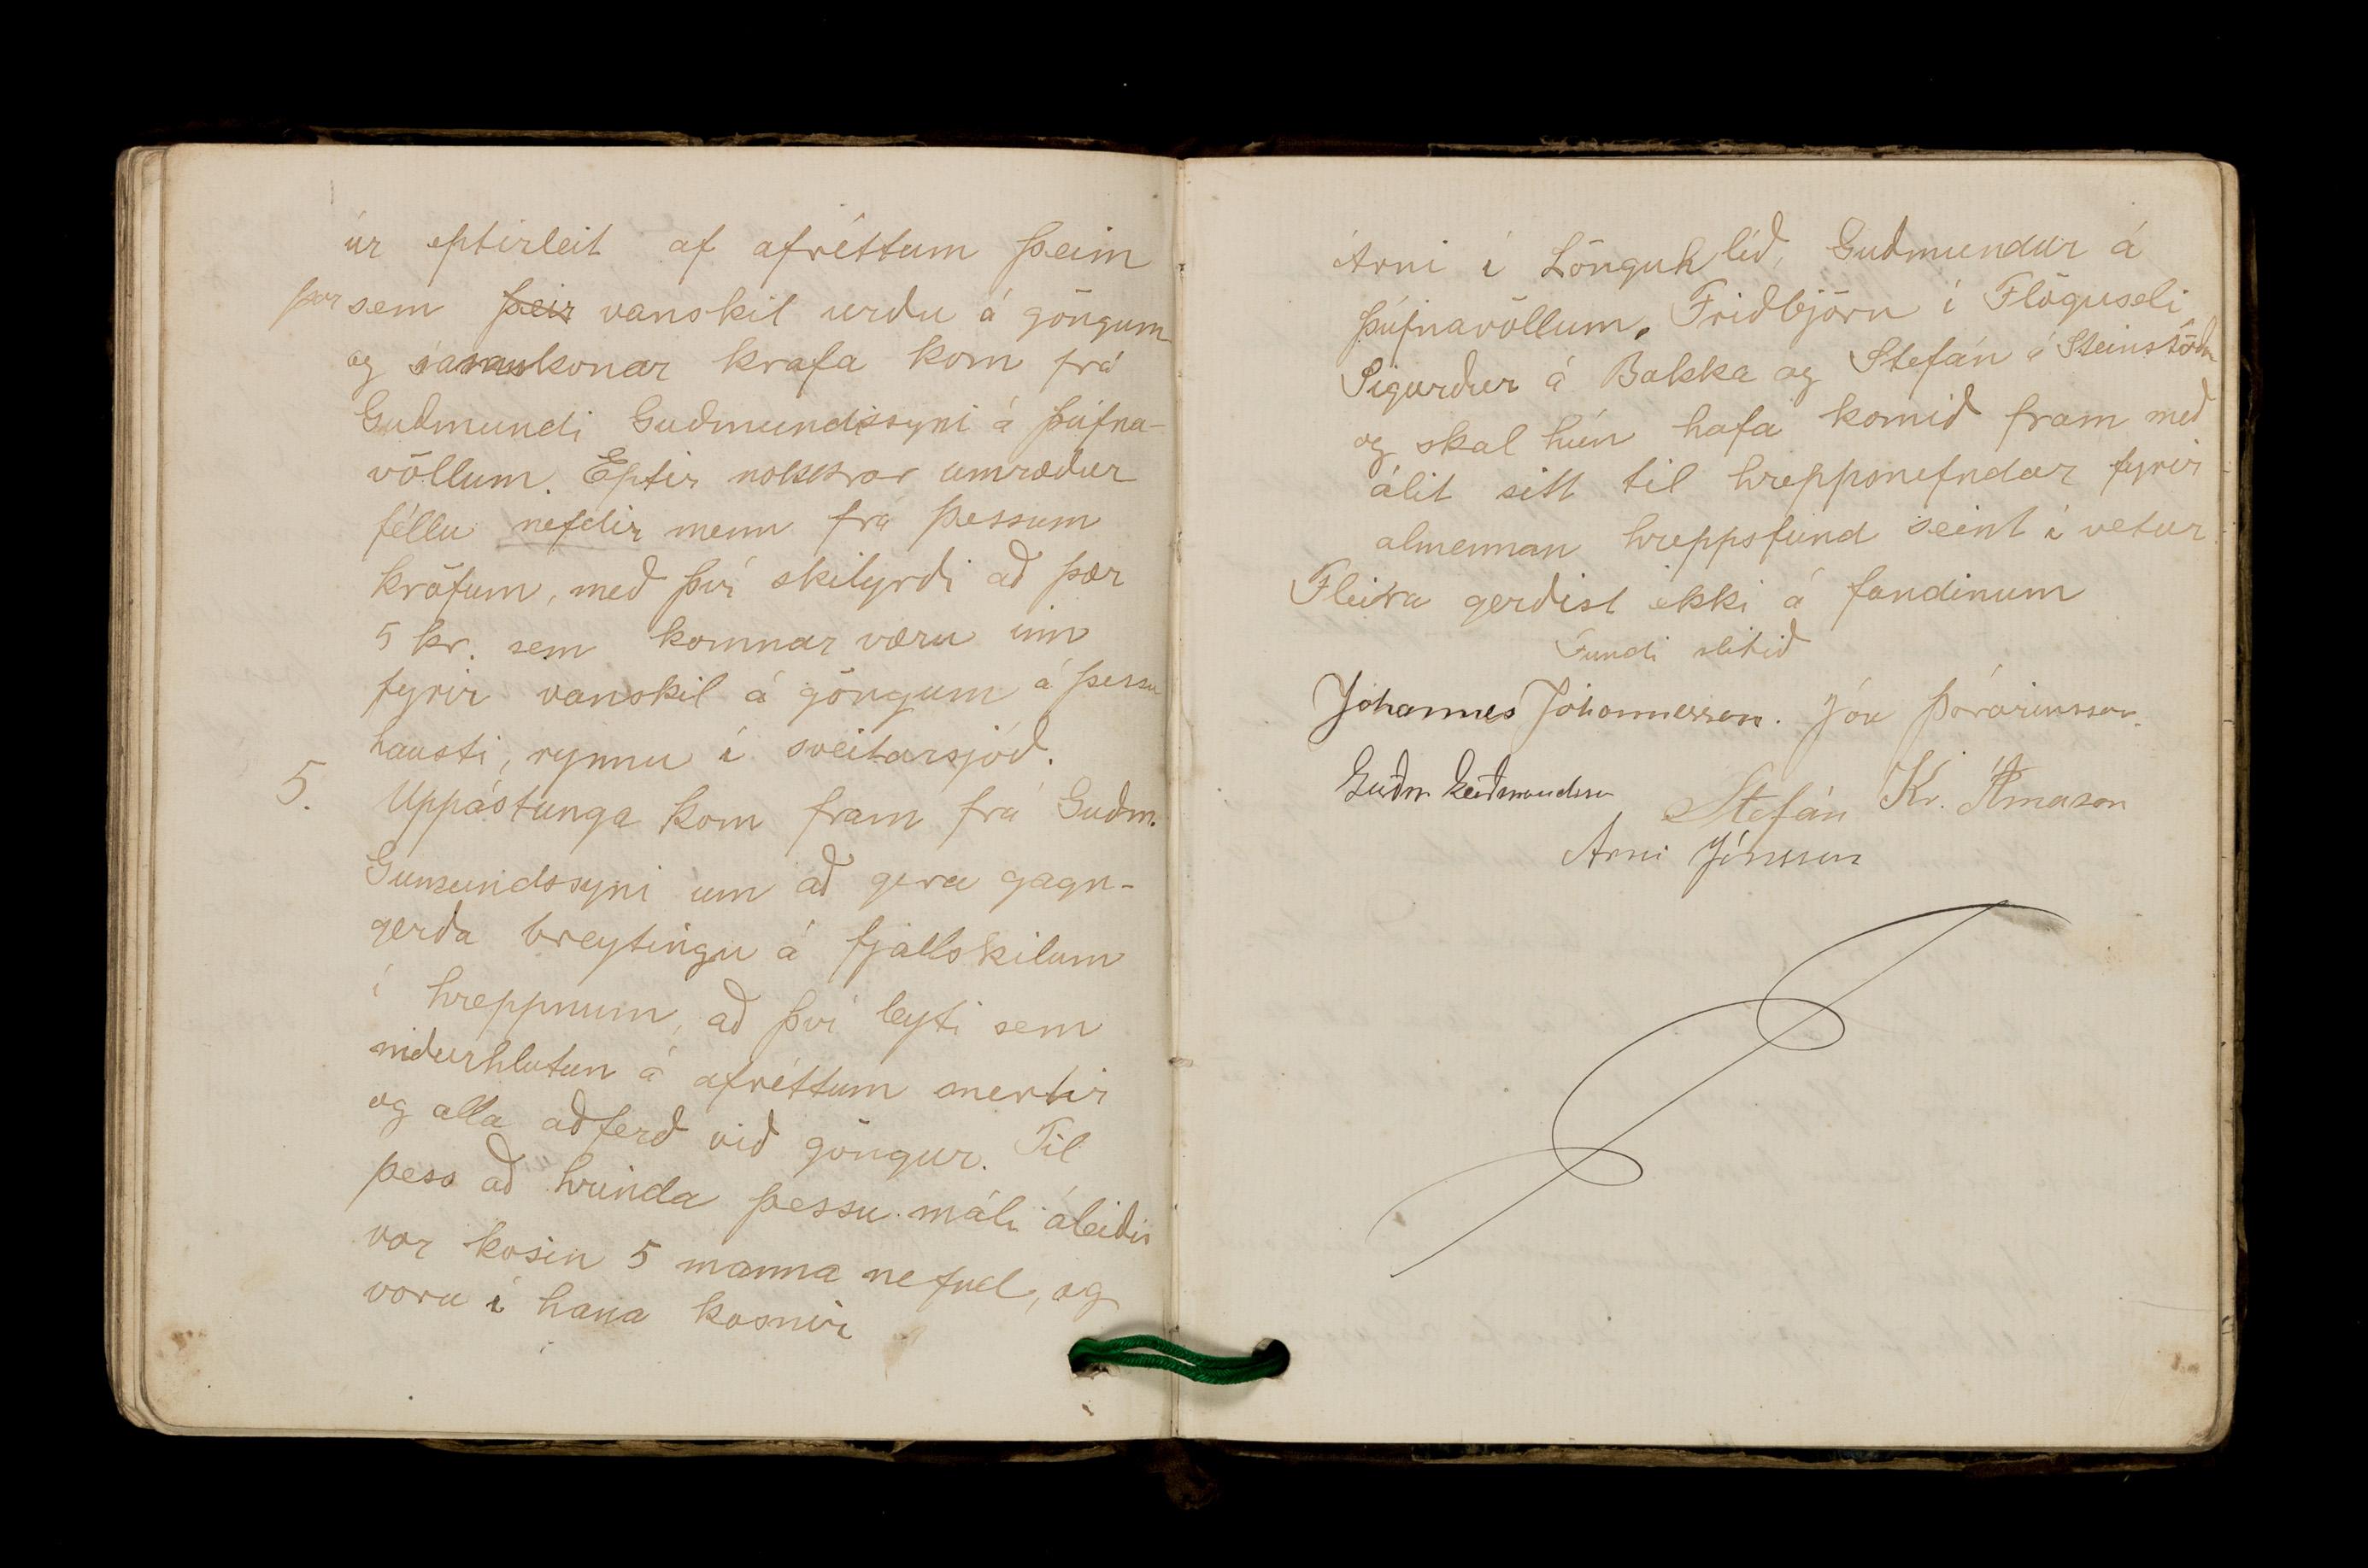 úr eptirleit af afréttum þeim
þar sem þeir vanskil urðu á göngum
og samskonar krafa kom frá
Guðmundi Guðmundssyni á Þúfna-
völlum. Eptir nokkrar umræður
féllu nefdir menn frá þessum
kröfum, með því skilyrði að þær
5 kr. sem komnar væru inn
fyrir vanskil á göngum á þessu
hausti, rynnu í sveitarsjóð.
5. Uppástunga kom fram frá Guðm.
Gumundssyni um að gera gagn-
gerða breytingu á fjallskilum
í hreppnum, að því leyti sem
niðurhlutun á afréttum snertir
og alla aðferð við göngur. Til
þess að hrinda þessu máli áleiðis
var kosin 5 manna nefnd, og
voru í hana kosnir
Árni í Lönguhlíð, Guðmundur á
Þúfnavöllum, Friðbjörn í Flöguseli,
Sigurður á Bakka og Stefán á Steinstöðu
og skal hún hafa komið fram með
álit sitt til hreppsnefndar fyrir
almennan hreppsfund seint í vetur.
Fleira gerðist ekki á fundinum
Fundi slitið
Jóhannes Jóhannesson. Jón Þórarinsson.
Guðm Guðmundsson Stefán Kr. Árnason
Árni Jónsson